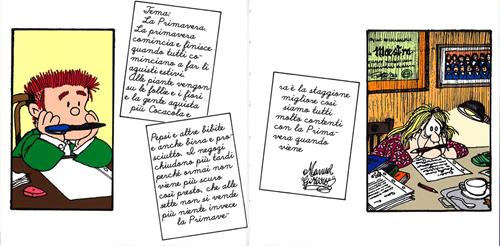 Tema:
La Primavera.
La primavera
comincia e finisce
quando tutti co-
minciano a far li
aquisti estivi.
Alle piante vengon
su le follie e i fiori
e la gente aquista
più Cocacola e
Pepsi e altre bibite
e anche birra e pro-
sciutto. I negozi
chiudono più tardi
perché ormai non
viene più scuro
così presto, che alle
sette non si vende
più niente invece
la Primave-
ra è la staggione
migliore così
siamo tutti
molto contenti
con la Prima-
vera quando
viene
Manuel
Maestra